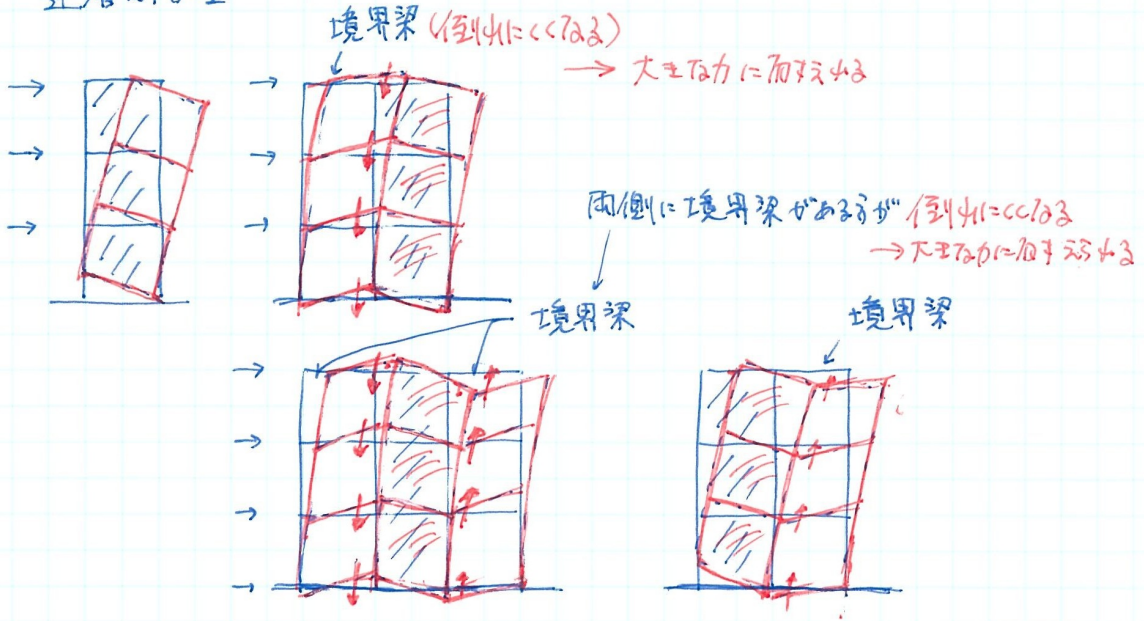 境界梁 (倒れにくくなる)
→ 大きな力に耐えれる
両側に境界梁がある方が 倒れにくくなる
→ 大きな力に耐えられる
境界梁
境界梁